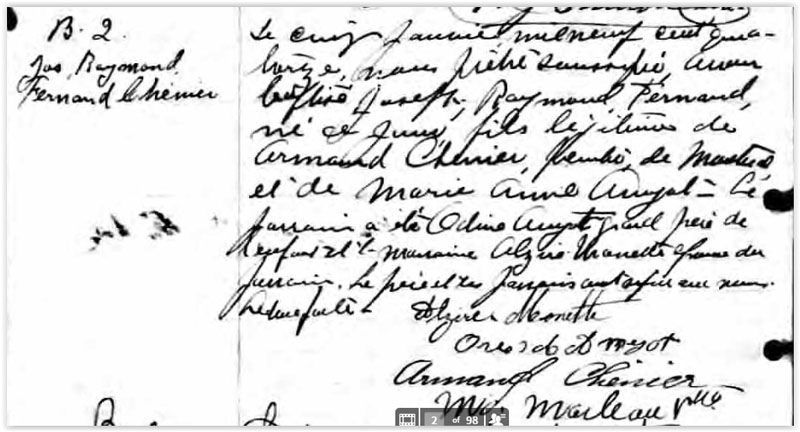 B. 2
Jos, Raymond
Fernand Chénier
Le cinq Janvier mil neuf cent qua-
torze, nous prêtre soussigné, avons
baptisé Joseph, Raymond, Fernand,
né ce jour, fils légitime de
Armand Chénier, de
et de Marie Anne Amyot - Le
parrain a été Amyot grand père de
l'enfant et la marraine Alzire Monette femme du
parrain. Le père et les parrains ont signé avec nous.
Lecture faite -
Alzire Monette
Amyot
Armand Chénier
Marleau Ptre
2 of 98